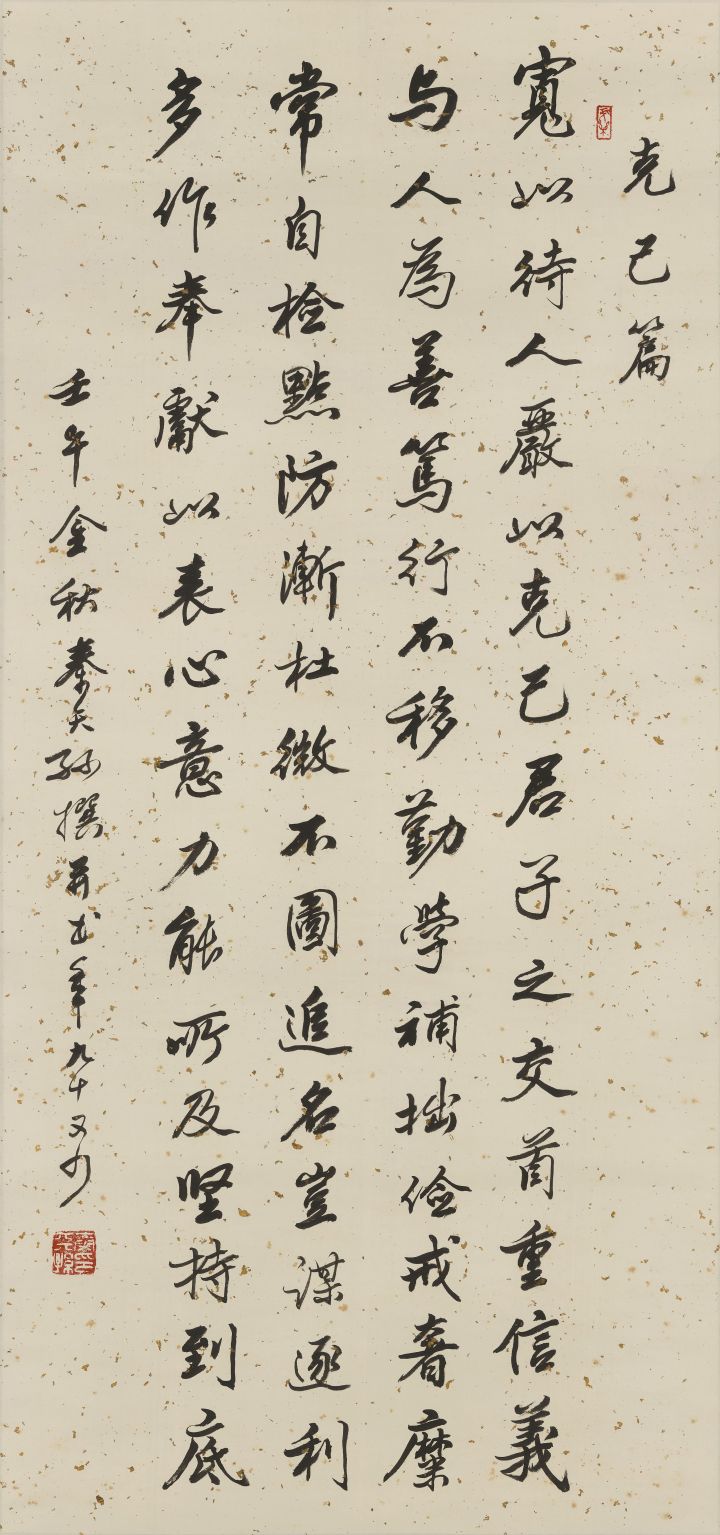 克己篇
寬以待人嚴以克己君子之交首重信義
与人為善篤行不移勤學補拙儉戒奢糜
常自檢點防漸杜微不圖追名豈謀逐利
多作奉獻以表心意力能所及堅持到底
壬午金秋秦天孙撰并书年九十又四